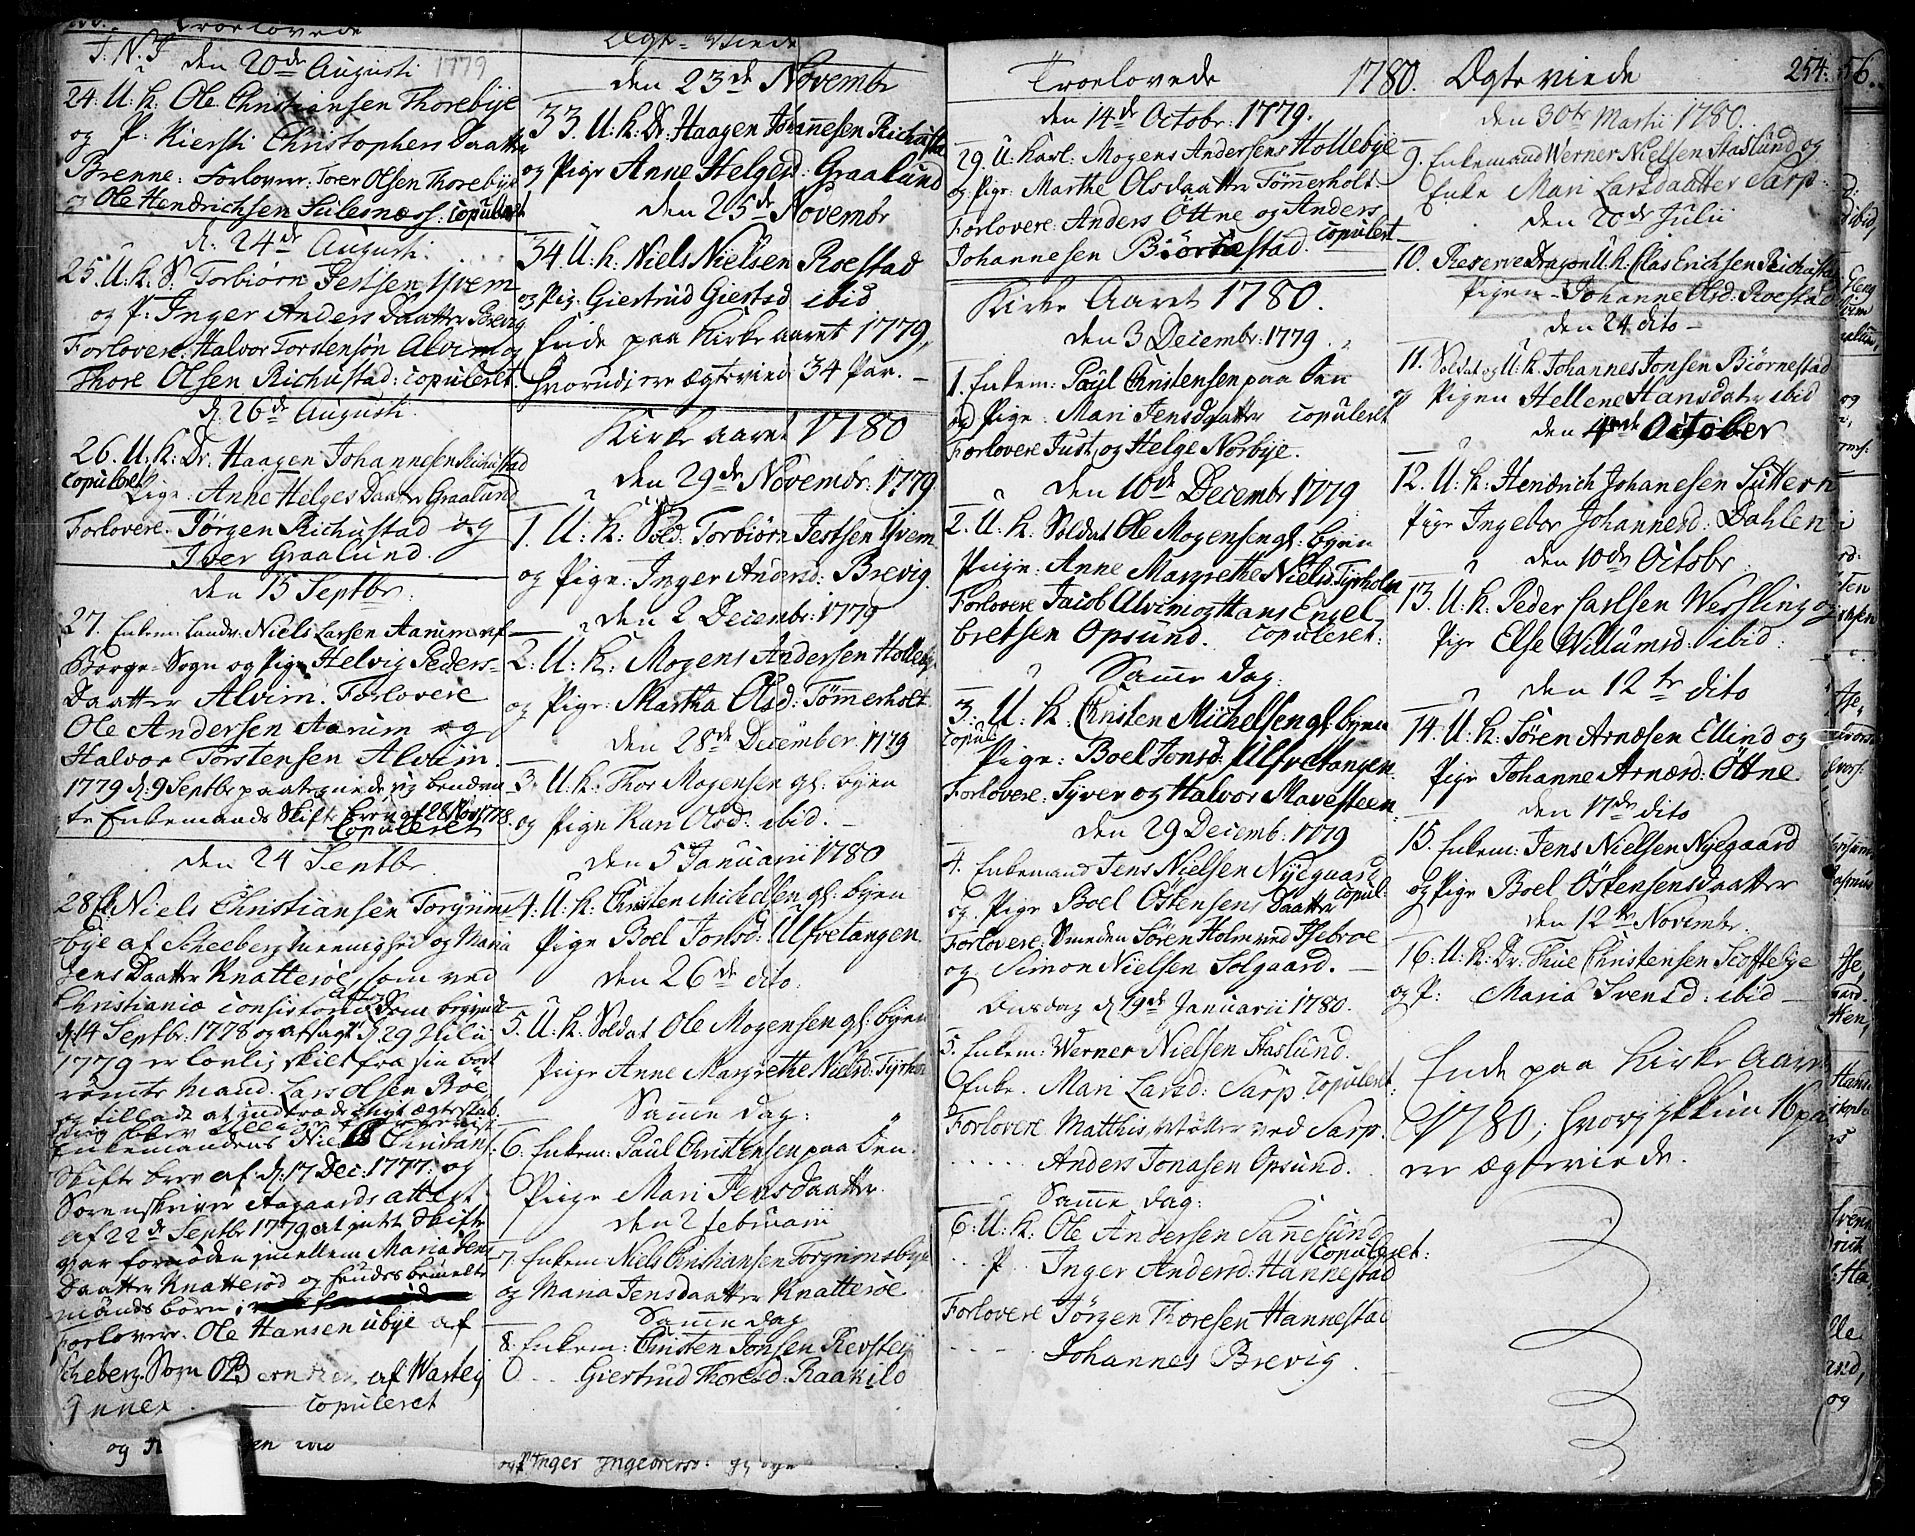 Troelovede
J. N. J. den 20de Augusti 1779
24. U. K. Ole Christiansen Thorebÿe
og P: Kiersti Christophers Daatter
Brenne: Forlovere: Iver Olsen Thorebÿe
og Ole Hendrichsen Sulesnæss: copuleret
d. 24de Augusti.
25. U. K. S. Torbiörn Jestsen Yvem
og P: Inger Anders Daatter Brevig
Forlovere. Halvor Torstensön Alvim og
Thore Olsen Richustad: copuleret.
d. 26de Augusti.
26. U. K: Dr. Haagen Johannesen Richustad
copuleret Pige: Anne Helges Daater Graalund
Forlovere. Jørgen Richustad og
Iver Graalund.
den 15 Septbr:
27. Enkem: Landv: Niels Larsen Aarum af
Borge Sogn og Pige Helvig Peders-
Daatter Alvim. Forlovere
Ole Andersen Aarum og
Halvor Torstensen Alvim.
1779 d. 9 Septbr paategnede sig bendvn
te Enkemands Skifte brev af 28 Nov 1778.
Copuleret
den 24 Septbr
28. Niels Christiansen Torgrims
bÿe af Scheeberg Menighed og Maria
Jens Daatter Knatteröe, som ved
Christianiæ consistorii Dom
d. 14 Septbr. 1778 og afsagt d. 29 Julii
1779 er lovlig skilt fra sin bort
römte Mand. Lars Olsen Boe
og tillade at indtræde i nyt ægteskab
Enkemandens Niels Christians:
Skifte brev af d. 17 Dec: 1777. og
Sorenskriver Aagaards attest
af 22de Septbr 1779 at intet Skifte
var fornöden imellem Maria Jens
Daatter Knatteröd og hendes bemelte
mands börn;
Forlovere. Ole Hansen Ubÿe af
Scheberg Sogn Ole af Warteig
copuleret
og
Ægte-Viede
den 23de Novembr
33. U. K. Dr: Haagen Johannesen Richustad
og Pige Anne Helgesd: Graalund
den 25de Novembr
34. U. K. Niels Nielsen Roestad
og Pig: Giertrud Gierstad ibid
Ende paa Kirke aaret 1779,
hvorudi ere Ægteviede 34 Par. —
Kirke aaret 1780
den 29de Novembr: 1779
1. U: K: Sold. Torbiörn Jestsen Yvem
og Pige: Inger Andersd: Brevig.
den 2 Decembr: 1779
2. U: K: Mogens Andersen Hollebÿe
og Pige: Martha Olsd: Tömmerholt.
den 28de Decembr: 1779
3. U: K: Thor Mogensen gl: bÿen
og Pige Kari Olsd: ibid. —
den 5 Januarii 1780
4. U: K: Christen Michelsen gl: bÿen
Pige Boel Jonsd: Ulfvetangen
den 26de dito.
5. U: K: Soldat Ole Mogensen gl: bÿen
Piige Anne Margrethe Nielsd: Tÿrholm
Samme dag:
6. Enkem: Paul Christensen paa Öen.
Piige Mari Jens Daatter.
den 2 februarii
7. Enkem Niels Christiansen Torgrimsbÿe
og Maria Jensdaatter Knatteröe
Samme dag
8. Enkem: Christen Jonsen Revsteig
Giertrud Thoresd: Raakild
og P Inger Ingebretsd: gl bÿe
Troelovede 1780.
den 14de Octobr: 1779.
29. U: Karl: Mogens Andersens Hollebÿe
og Pige: Marthe Olsdaatter Tömmerholt.
Forlovere: Anders Öttne og Anders
Johannesen Biörnestad. copulert
Kirke Aaret 1780.
den 3 Decembr: 1779.
1. Enkem: Paul Christensen paa Öen
og Pige. Mari Jensdaatter copuleret
Forlovere Just, og Helge Norbÿe.
den 10de Decembr 1779
2. U. K. Soldat Ole Mogensen gl: bÿen
Piige. Anne Margrethe Nielsd: Tÿrholm
Forlovere Jacob Alvim og Hans Engel
bretsen Opsund. copuleret.
Samme dag:
3. U: K. Christen Michelsen gl: bÿen
copul:
Pige: Boel Jonsd: Ulfvetangen
Forlovere: Sÿver og Halvor Mavesteen.
den 29 Decemb: 1779
4. Enkemand Jens Nielsen Nÿeguard
og Pige Boel Östensens Daatter copul:
Forlovere: Smeden Sören Holm ved Iisebroe
og Simon Nielsen Solgaard. —
Onsdag d. 19de Januarii 1780.
5. Enkem: Werner Nielsen Haslund.
Enke. Mari Larsd: Sarp copuleret:
Forlovere Matthis Möller ved Sarp.
Anders Jonasen Opsund.
Samme dag:
6. U. K: Ole Andersen Sanesund
P. Inger Andersd: Hannestad copuleret:
Forlovere Jörgen Thoresen Hannestad
Johannes Brevig.
Ægte viede 254.
den 30te Martii 1780.
9. Enkemand Werner Nielsen Haslund og
Enke Mari Larsdaatter Sarp.
den 20de Julii
10. Reserve Dragon U. K. Clas Erichsen Richustad
Pigen Johanne Olsd: Roestad
den 24 dito —
11. Soldat og U: K. Johannes Jonsen Biörnestad
og Pigen Hellene Hansdater ibid
den 4de October
12. U: K: Hendrich Johanesen Suttern
Pige Ingebor Johannesd: Dahlen
den 10de Octobr
13. U. K: Peder Carlsen Wessling og
Pige Else Willumsd: ibid:
den 12te dito
14. U: K: Sören Arnesen Ellind og
Pige Johanne Arnesd: Öttne
den 17de dito
15. Enkem: Jens Nielsen Nÿegaard
og Pige Boel Östensensdaatter
den 12te Novembr.
16. U. K. Dr. Thue Christensen Skoftebÿe
og P: Maria Svensd: ibid —
Ende paa Kirke Aaret
1780; hvorj ikkun 16 par
ere ægteviede.